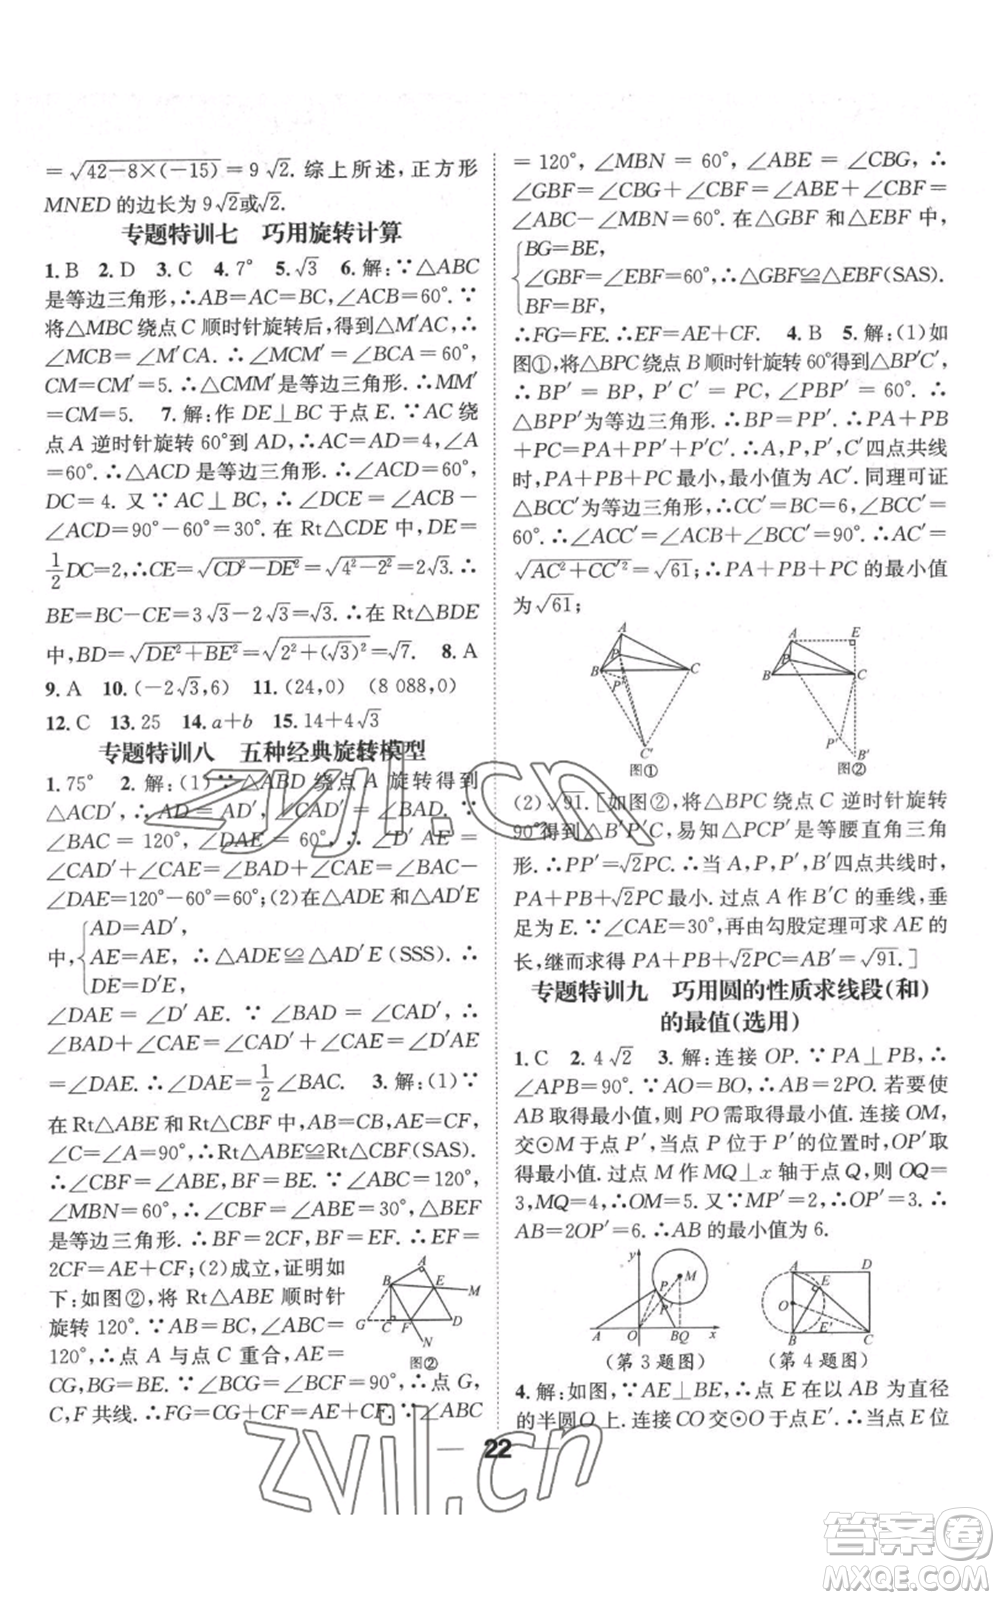 =√(42-8×(-15))=9√2. 综上所述,正方形
MNED 的边长为 9√2或√2.
专题特训七 巧用旋转计算
1. B 2. D 3. C 4. 7° 5. √3 6. 解:∵△ABC
是等边三角形,∴AB=AC=BC,∠ACB=60°. ∵
将△MBC 绕点 C 顺时针旋转后,得到△M′AC,∴
∠MCB=∠M′CA. ∴∠MCM′=∠BCA=60°,
CM=CM′=5. ∴△CMM′是等边三角形. ∴MM′
=CM=5. 7. 解:作 DE⊥BC 于点 E. ∵AC 绕
点 A 逆时针旋转 60°到 AD,∴AC=AD=4,∠A
=60°. ∴△ACD 是等边三角形. ∴∠ACD=60°,
DC=4. 又∵AC⊥BC,∴∠DCE=∠ACB-
∠ACD=90°-60°=30°. 在 Rt△CDE 中,DE=
1/2 DC=2,∴CE=√(CD²-DE²)=√(4²-2²)=2√3. ∴
BE=BC-CE=3√3-2√3=√3. ∴在 Rt△BDE
中,BD=√(DE²+BE²)=√(2²+(√3)²)=√7. 8. A
9. A 10. (-2√3,6) 11. (24,0) (8 088,0)
12. C 13. 25 14. a+b 15. 14+4√3
专题特训八 五种经典旋转模型
1. 75° 2. 解:(1)∵△ABD 绕点 A 旋转得到
△ACD′,∴AD=AD′,∠CAD′=∠BAD. ∵
∠BAC=120°,∠DAE=60°,∴∠D′AE=
∠CAD′+∠CAE=∠BAD+∠CAE=∠BAC-
∠DAE=120°-60°=60°;(2)在△DAE 和△D′AE
中,{AD=AD′,
AE=AE,
DE=D′E,
∴△ADE≌△AD′E(SSS). ∴
∠DAE=∠D′AE. ∵∠D′AE=∠CAD′+
∠CAE=∠BAD+∠CAE,∴∠BAD+∠CAE=
∠DAE. ∴∠DAE=1/2∠BAC. 3. 解:(1)∵
在 Rt△ABE 和 Rt△CBF 中,AB=CB,AE=CF,
∠C=∠A=90°,∴Rt△ABE≌Rt△CBF(SAS).
∴∠CBF=∠ABE,BF=BE. ∵∠ABC=120°,
∠MBN=60°,∴∠CBF=∠ABE=30°,△BEF
是等边三角形. ∴BF=2CF,BF=EF. ∴EF=
2CF=AE+CF;(2)成立,证明如
下:如图②,将 Rt△ABE 顺时针
旋转 120°. ∵AB=BC,∠ABC=
120°,∴点 A 与点 C 重合,AE=
CG,BG=BE. ∵∠BCF=90°,∴点 G,
C,F 共线. ∴FG=CG+CF=AE+CF. ∵∠ABC
A
B
E
M
G
C
F
D
N
图②
=120°,∠MBN=60°,∠ABE=∠CBG,∴
∠GBF=∠CBG+∠CBF=∠ABE+∠CBF=
∠ABC-∠MBN=60°. 在△GBF 和△EBF 中,
{BG=BE,
∠GBF=∠EBF=60°,∴△GBF≌△EBF(SAS).
BF=BF,
∴FG=FE. ∴EF=AE+CF. 4. B 5. 解:(1)如
图①,将△BPC 绕点 B 顺时针旋转 60°得到△BP′C′,
∴BP′=BP,P′C′=PC,∠PBP′=60°. ∴
△BPP′为等边三角形. ∴BP=PP′. ∴PA+PB
+PC=PA+PP′+P′C′. ∴A,P,P′,C′四点共线
时,PA+PB+PC 最小,最小值为 AC′. 同理可证
△BCC′为等边三角形,∴CC′=BC=5,∠BCC′=
60°. ∴∠ACC′=∠ACB+∠BCC′=90°. ∴AC′=
√(AC²+CC′²)=√61;∴PA+PB+PC 的最小值
为√61;
A
B
P
C
P′
C′
图①
A
E
B
P
C
P′
B′
图②
(2)√91. [如图②,将△BPC 绕点 C 逆时针旋转
90°得到△B′P′C,易知△PCP′是等腰直角三角
形. ∴PP′=√2PC. ∴当 A,P,P′,B′四点共线时,
PA+PB+√2PC 最小. 过点 A 作 B′C 的垂线,垂
足为 E. ∵∠CAE=30°,再由勾股定理可求 AE 的
长,继而求得 PA+PB+√2PC=AB′=√91.]
专题特训九 巧用圆的性质求线段(和)
的最值(选用)
1. C 2. 4√2 3. 解:连接 OP. ∵PA⊥PB,∴
∠APB=90°. ∵AO=BO,∴AB=2PO. 若要使
AB 取得最小值,则 PO 需取得最小值. 连接 OM,
交⊙M 于点 P′,当点 P 位于 P′的位置时,OP′取
得最小值. 过点 M 作 MQ⊥x 轴于点 Q,则 OQ=
3,MQ=4,∴OM=5. 又∵MP′=2,∴OP′=3. ∴
AB=2OP′=6. ∴AB 的最小值为 6.
y
P
M
P′
A
O
BQ
x
(第 3 题图)
A
D
E
O
B
E′
C
(第 4 题图)
4. 解:如图,∵AE⊥BE,∴点 E 在以 AB 为直径
的半圆O 上. 连接 CO 交⊙O 于点E′. ∴当点 E 位
— 22 —
zyjl.cn
zyjl.cn
答案圈
MXQE.COM